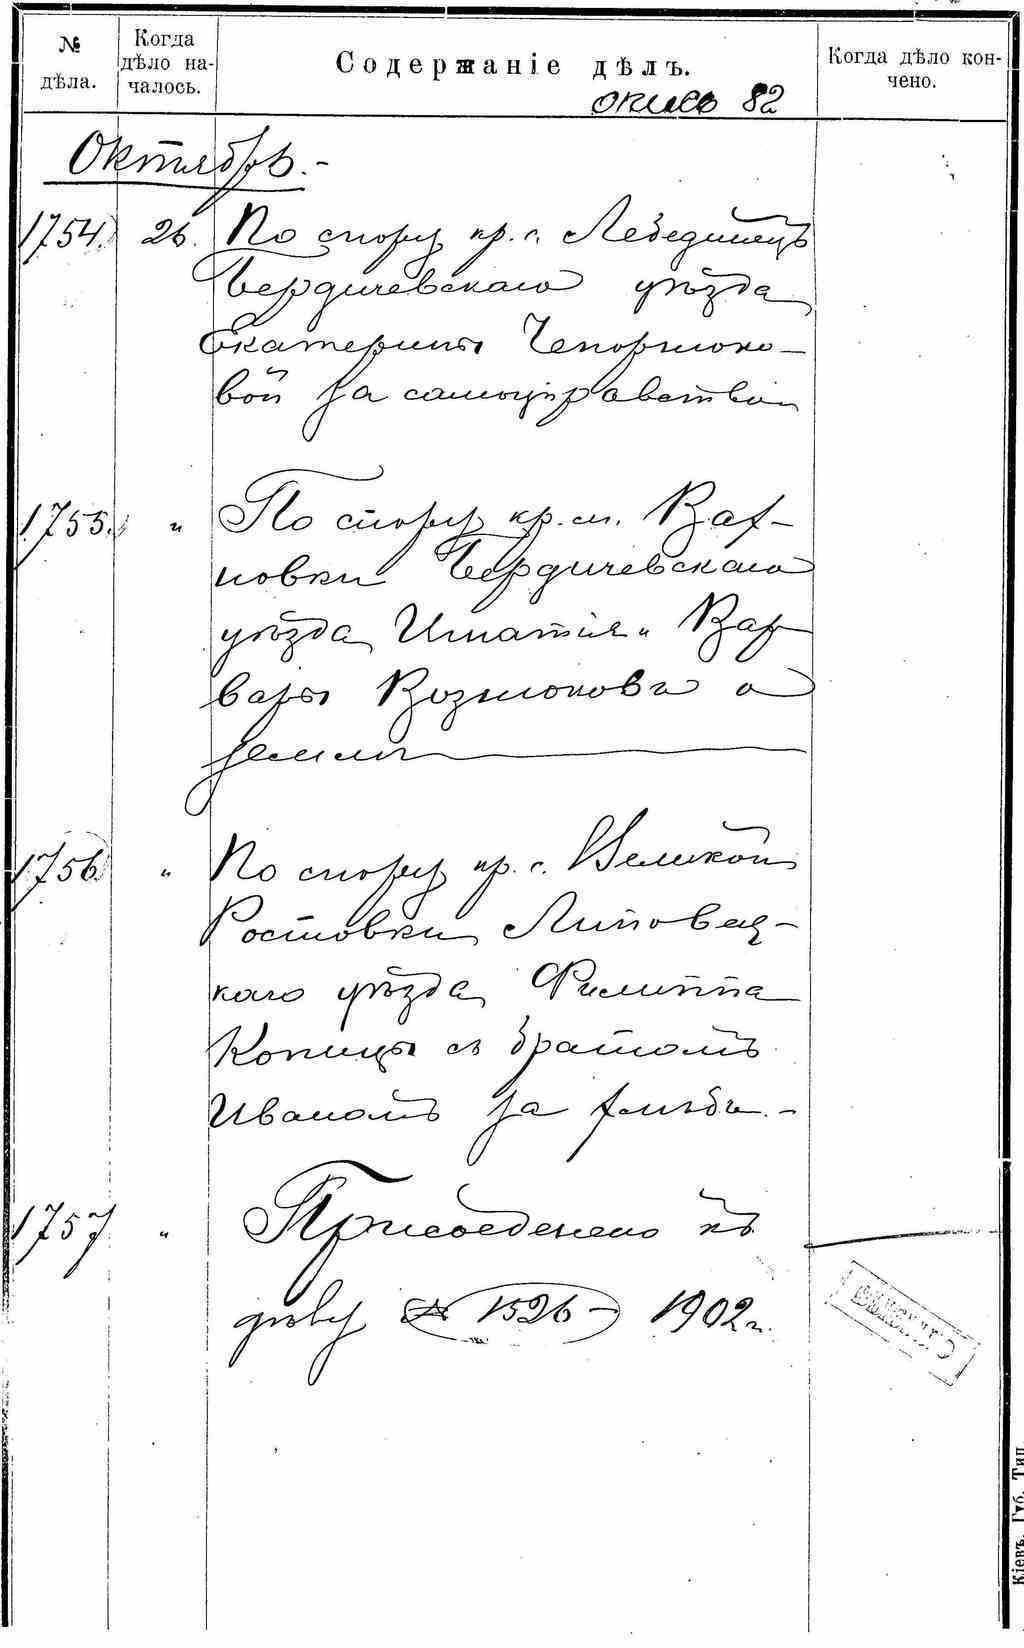 № дѣла.
Когда дѣло на-
чалось.
Содержаніе дѣлъ.
Когда дѣло кон-
чено.
опись 82
Октябрь.-
1754. 26. По спору кр. с. Лебединецъ
Бердичевскаго уѣзда
Екатерины
вой за самоуправство
1755. " По спору кр. м. Вах-
новки Бердичевскаго
уѣзда Игнатія и Вар
вары Вознюковъ о
землѣ
1756. " По спору кр. с. Великой
Ростовки Липовец-
каго уѣзда Филиппа
Копицы съ братомъ
Иваномъ за хлѣбъ.-
1757 " Присоединено къ
дѣлу № 1526 - 1902 г.
Кіевъ. Губ. Тип.